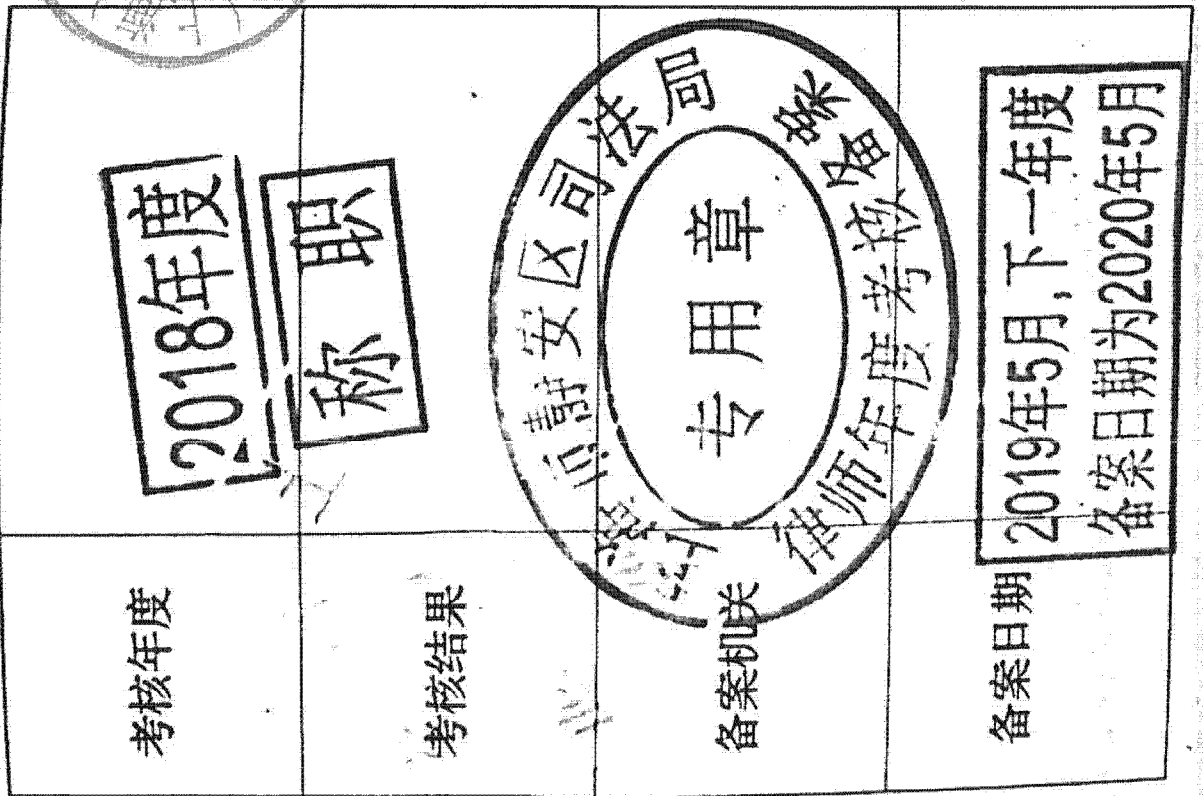 考核年度
2018年度
考核结果
称职
备案机关
上海市静安区司法局
律师年度考核备案
专用章
备案日期
2019年5月,下一年度
备案日期为2020年5月